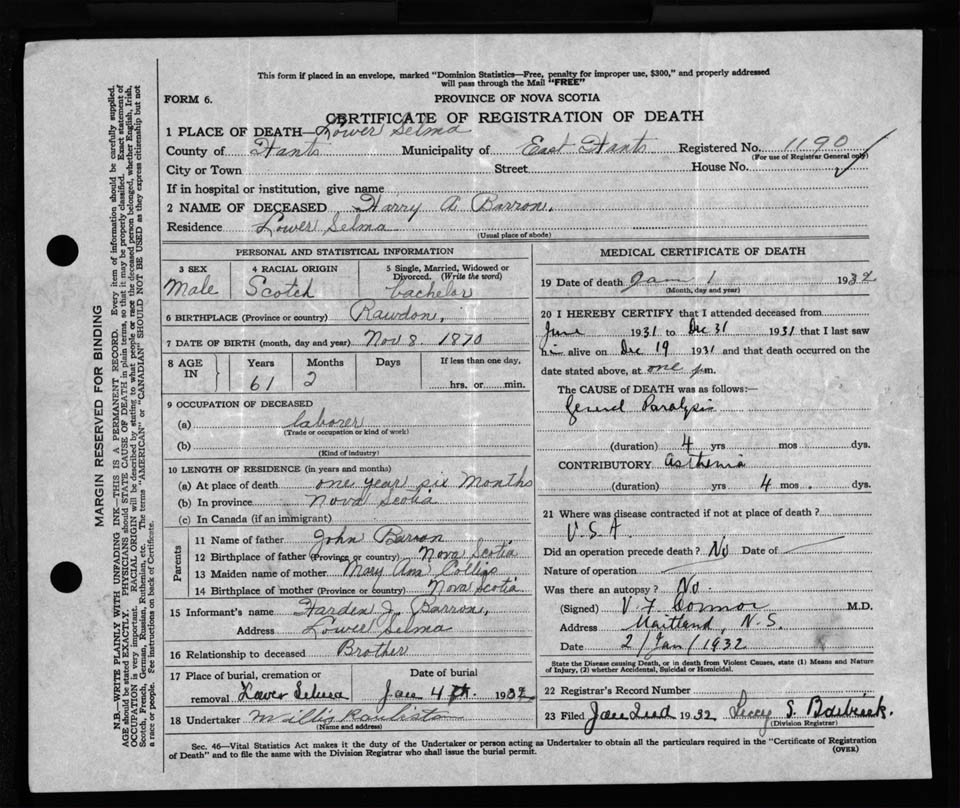 This form if placed in an envelope, marked "Dominion Statistics—Free, penalty for improper use, $300," and properly addressed
will pass through the Mail "FREE"
FORM 6.
PROVINCE OF NOVA SCOTIA
CERTIFICATE OF REGISTRATION OF DEATH
1 PLACE OF DEATH—Lower Selma
County of Hants Municipality of East Hants Registered No. 1190
(For use of Registrar General only)
City or Town Street House No.
If in hospital or institution, give name
2 NAME OF DECEASED Harry A Barron,
Residence Lower Selma
(Usual place of abode)
PERSONAL AND STATISTICAL INFORMATION
3 SEX 4 RACIAL ORIGIN 5 Single, Married, Widowed or
Divorced. (Write the word)
Male Scotch bachelor
6 BIRTHPLACE (Province or country) Rawdon,
7 DATE OF BIRTH (month, day and year) Nov 8. 1870
8 AGE IN Years Months Days If less than one day,
61 2 hrs. or min.
9 OCCUPATION OF DECEASED
(a) laborer
(Trade or occupation or kind of work)
(b)
(Kind of industry)
10 LENGTH OF RESIDENCE (in years and months)
(a) At place of death one year six months
(b) In province Nova Scotia
(c) In Canada (if an immigrant)
Parents
11 Name of father John Barron
12 Birthplace of father (Province or country) Nova Scotia
13 Maiden name of mother Mary Ann Collins
14 Birthplace of mother (Province or country) Nova Scotia
15 Informant's name Harden J. Barron,
Address Lower Selma
16 Relationship to deceased Brother
17 Place of burial, cremation or Date of burial
removal Lower Selma Jan 4th. 1932
18 Undertaker Willis
(Name and address)
MEDICAL CERTIFICATE OF DEATH
19 Date of death Jan 1 1932
(Month, day and year)
20 I HEREBY CERTIFY that I attended deceased from
June 1931 to Dec 31 1931 that I last saw
him alive on Dec 19 1931 and that death occurred on the
date stated above, at one p.m.
The CAUSE OF DEATH was as follows:—
General Paralysis
(duration) 4 yrs mos dys.
CONTRIBUTORY Asthenia
(duration) yrs 4 mos. dys.
21 Where was disease contracted if not at place of death?
U.S.A.
Did an operation precede death? No Date of
Nature of operation
Was there an autopsy? No.
(Signed) V. F. Connor M.D.
Address Maitland, N.S.
Date 2/Jan/1932
State the Disease causing Death, or in death from Violent Causes, state (1) Means and Nature
of Injury, (2) whether Accidental, Suicidal or Homicidal.
22 Registrar's Record Number
23 Filed Jan 2nd 1932 S.
(Division Registrar)
Sec. 46—Vital Statistics Act makes it the duty of the Undertaker or person acting as Undertaker to obtain all the particulars required in the "Certificate of Registration
of Death" and to file the same with the Division Registrar who shall issue the burial permit.
(OVER)
MARGIN RESERVED FOR BINDING
N.B.—WRITE PLAINLY WITH UNFADING INK—THIS IS A PERMANENT RECORD. Every item of information should be carefully supplied.
AGE should be stated EXACTLY. PHYSICIANS should STATE CAUSE OF DEATH in plain terms, so that it may be properly classified. Exact statement of
OCCUPATION is very important. RACIAL ORIGIN will be described by stating to what people or race the deceased person belonged, whether English, Irish,
Scotch, French, German, Russian, Ruthenian, etc. The terms "AMERICAN" or "CANADIAN" SHOULD NOT BE USED as they express citizenship but not
a race or people. See instructions on back of Certificate.